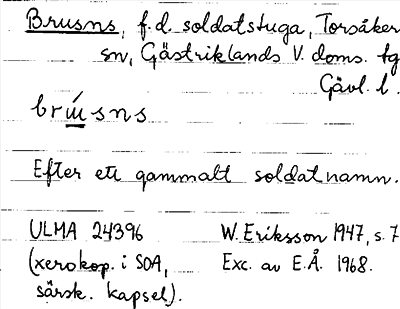 Brusns, f.d. soldatstuga, Torsåker
sn, Gästriklands V. doms. tg
Gävl. l.
brusns
Efter ett gammalt soldatnamn.
ULMA 24396
(xerokop. i SOA,
särsk. kapsel).
W. Eriksson 1947, s. 7
Exc. av E.Å. 1968.